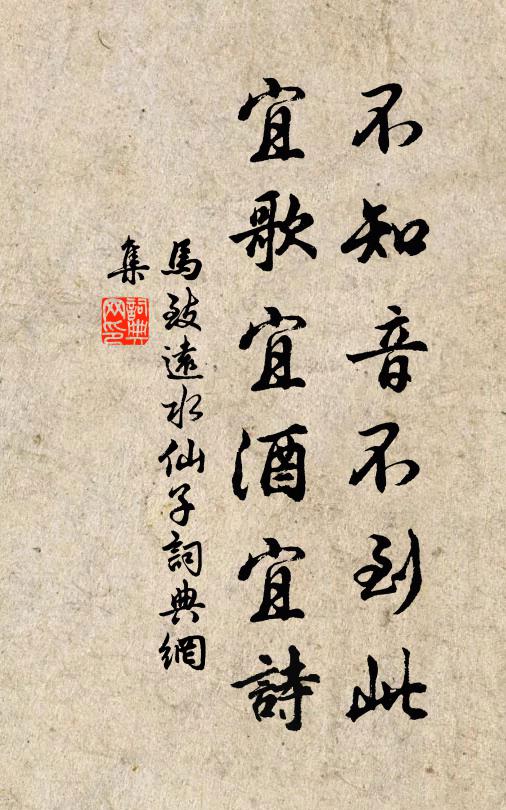 不知音不到此
宜歌宜酒宜詩
馬致遠水仙子詞典網
集
詞典網印